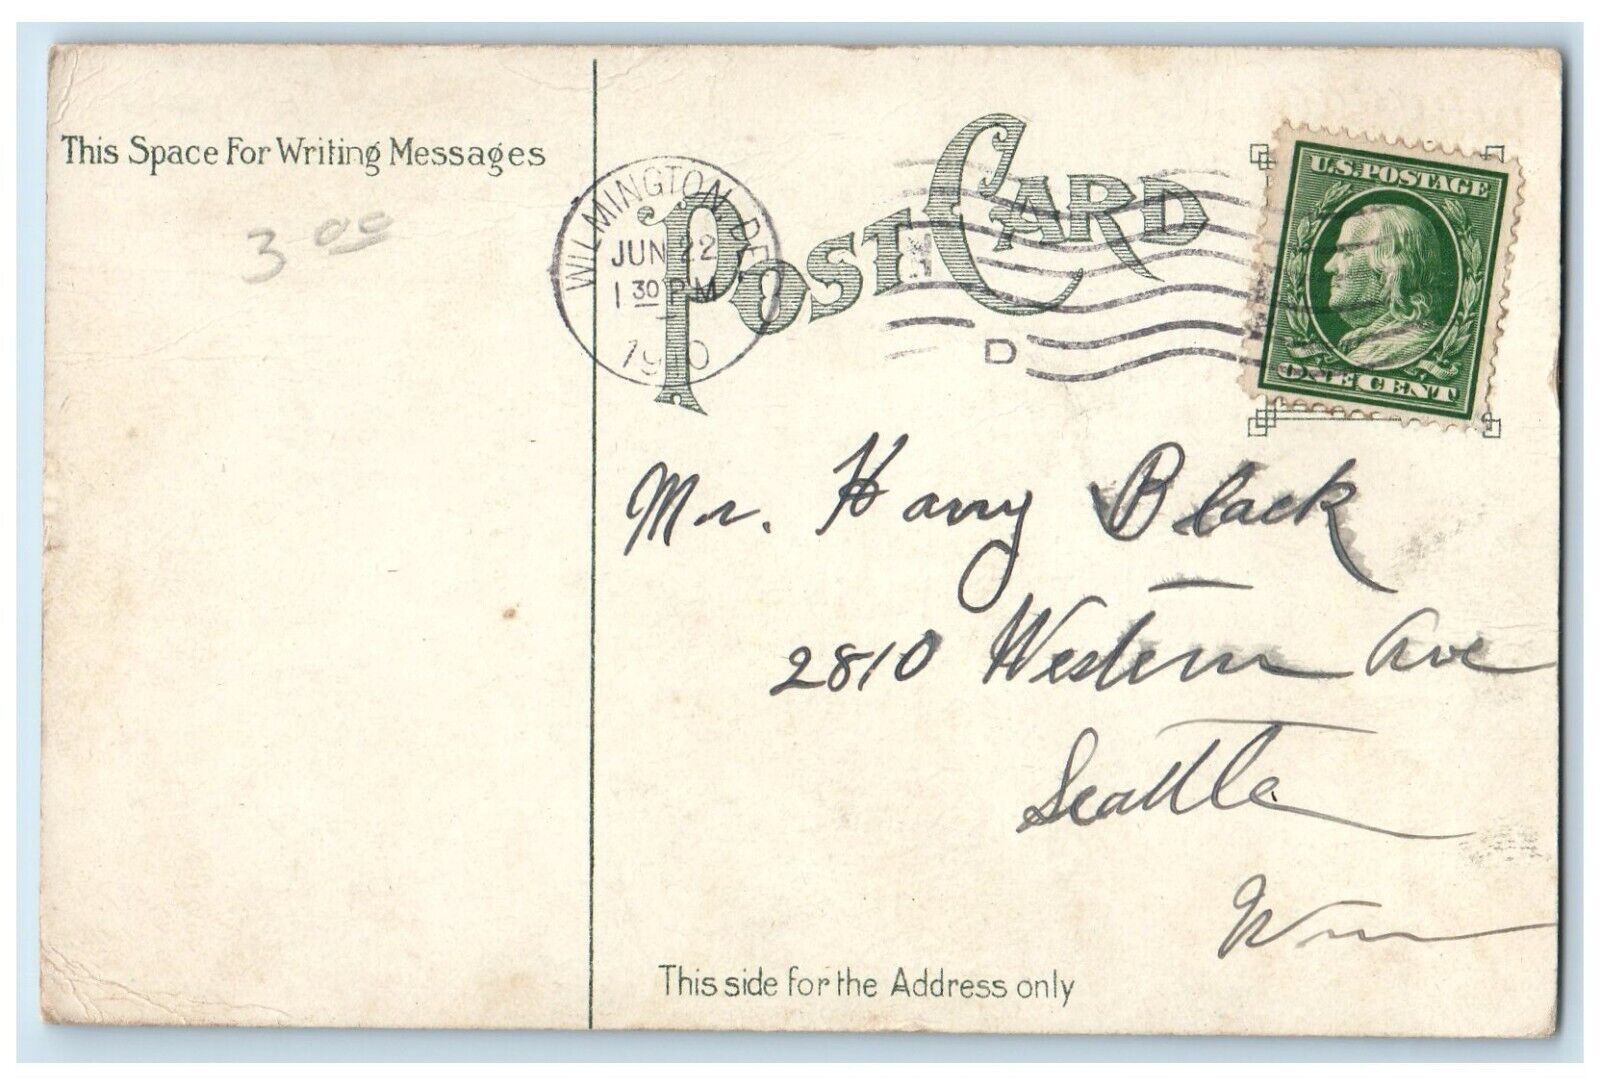 This Space For Writing Messages
3 00
WILMINGTON, DEL
JUN 22
1 30 PM
1910
POST CARD
D
U.S. POSTAGE
ONE CENT
Mr. Harry Black
2810 Western Ave
Seattle
Wn
This side for the Address only